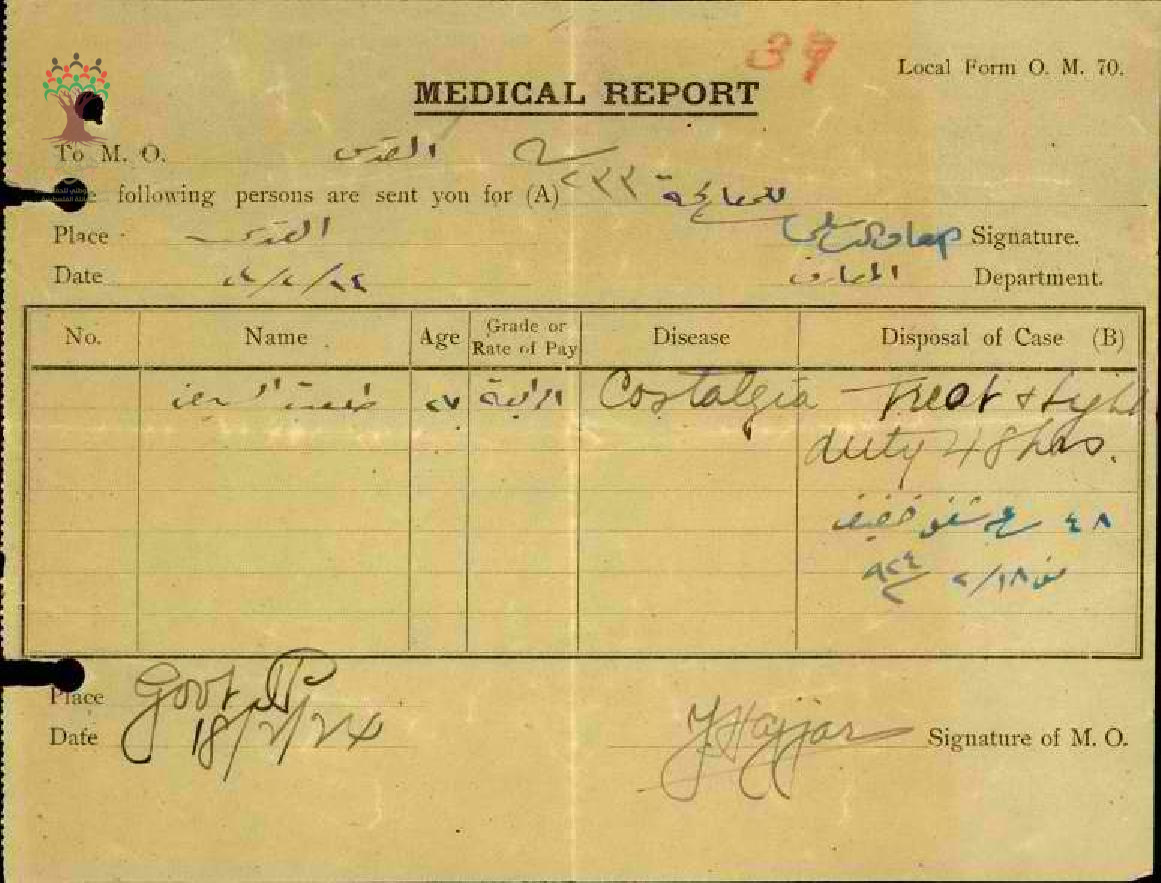 39
Local Form O. M. 70.
MEDICAL REPORT
To M. O. القدس
following persons are sent you for (A) ٢٣٣ للمعالجة
Place القدس Signature.
Date Department. المعارف
No. Name Age Grade or Rate of Pay Disease Disposal of Case (B)
٢٧ الرابعة Costalgia Treat & light
duty 48 hrs.
٤٨ شغل خفيف
١٨/٢
Place Govt
Date 18/2/24 Y. Hajjar Signature of M. O.